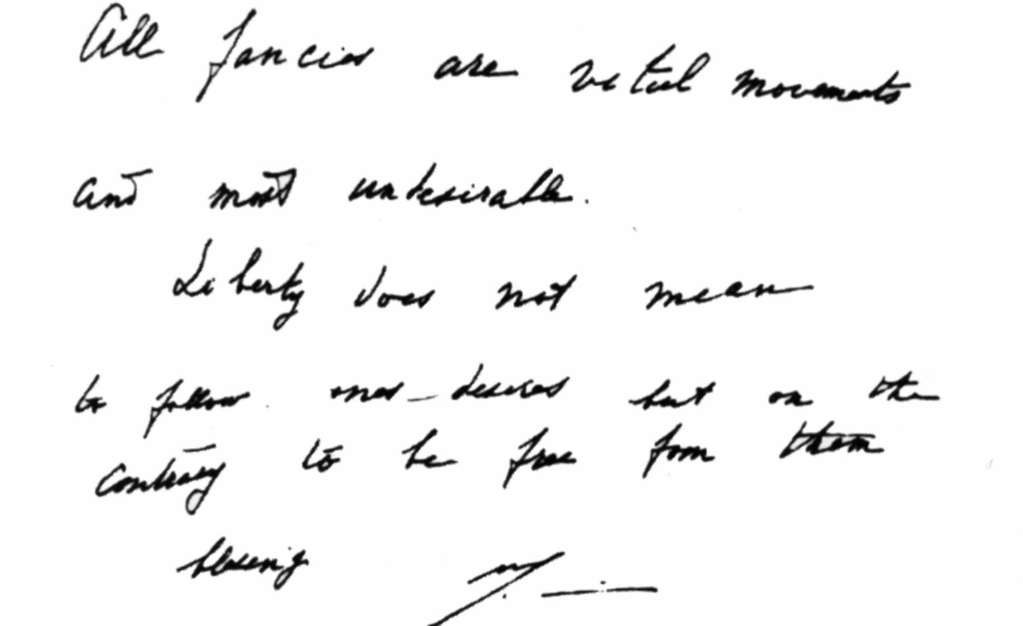 All fancies are vital movements
and most undesirable.
Liberty does not mean
to follow ones desires but on the
contrary to be free from them
blessing